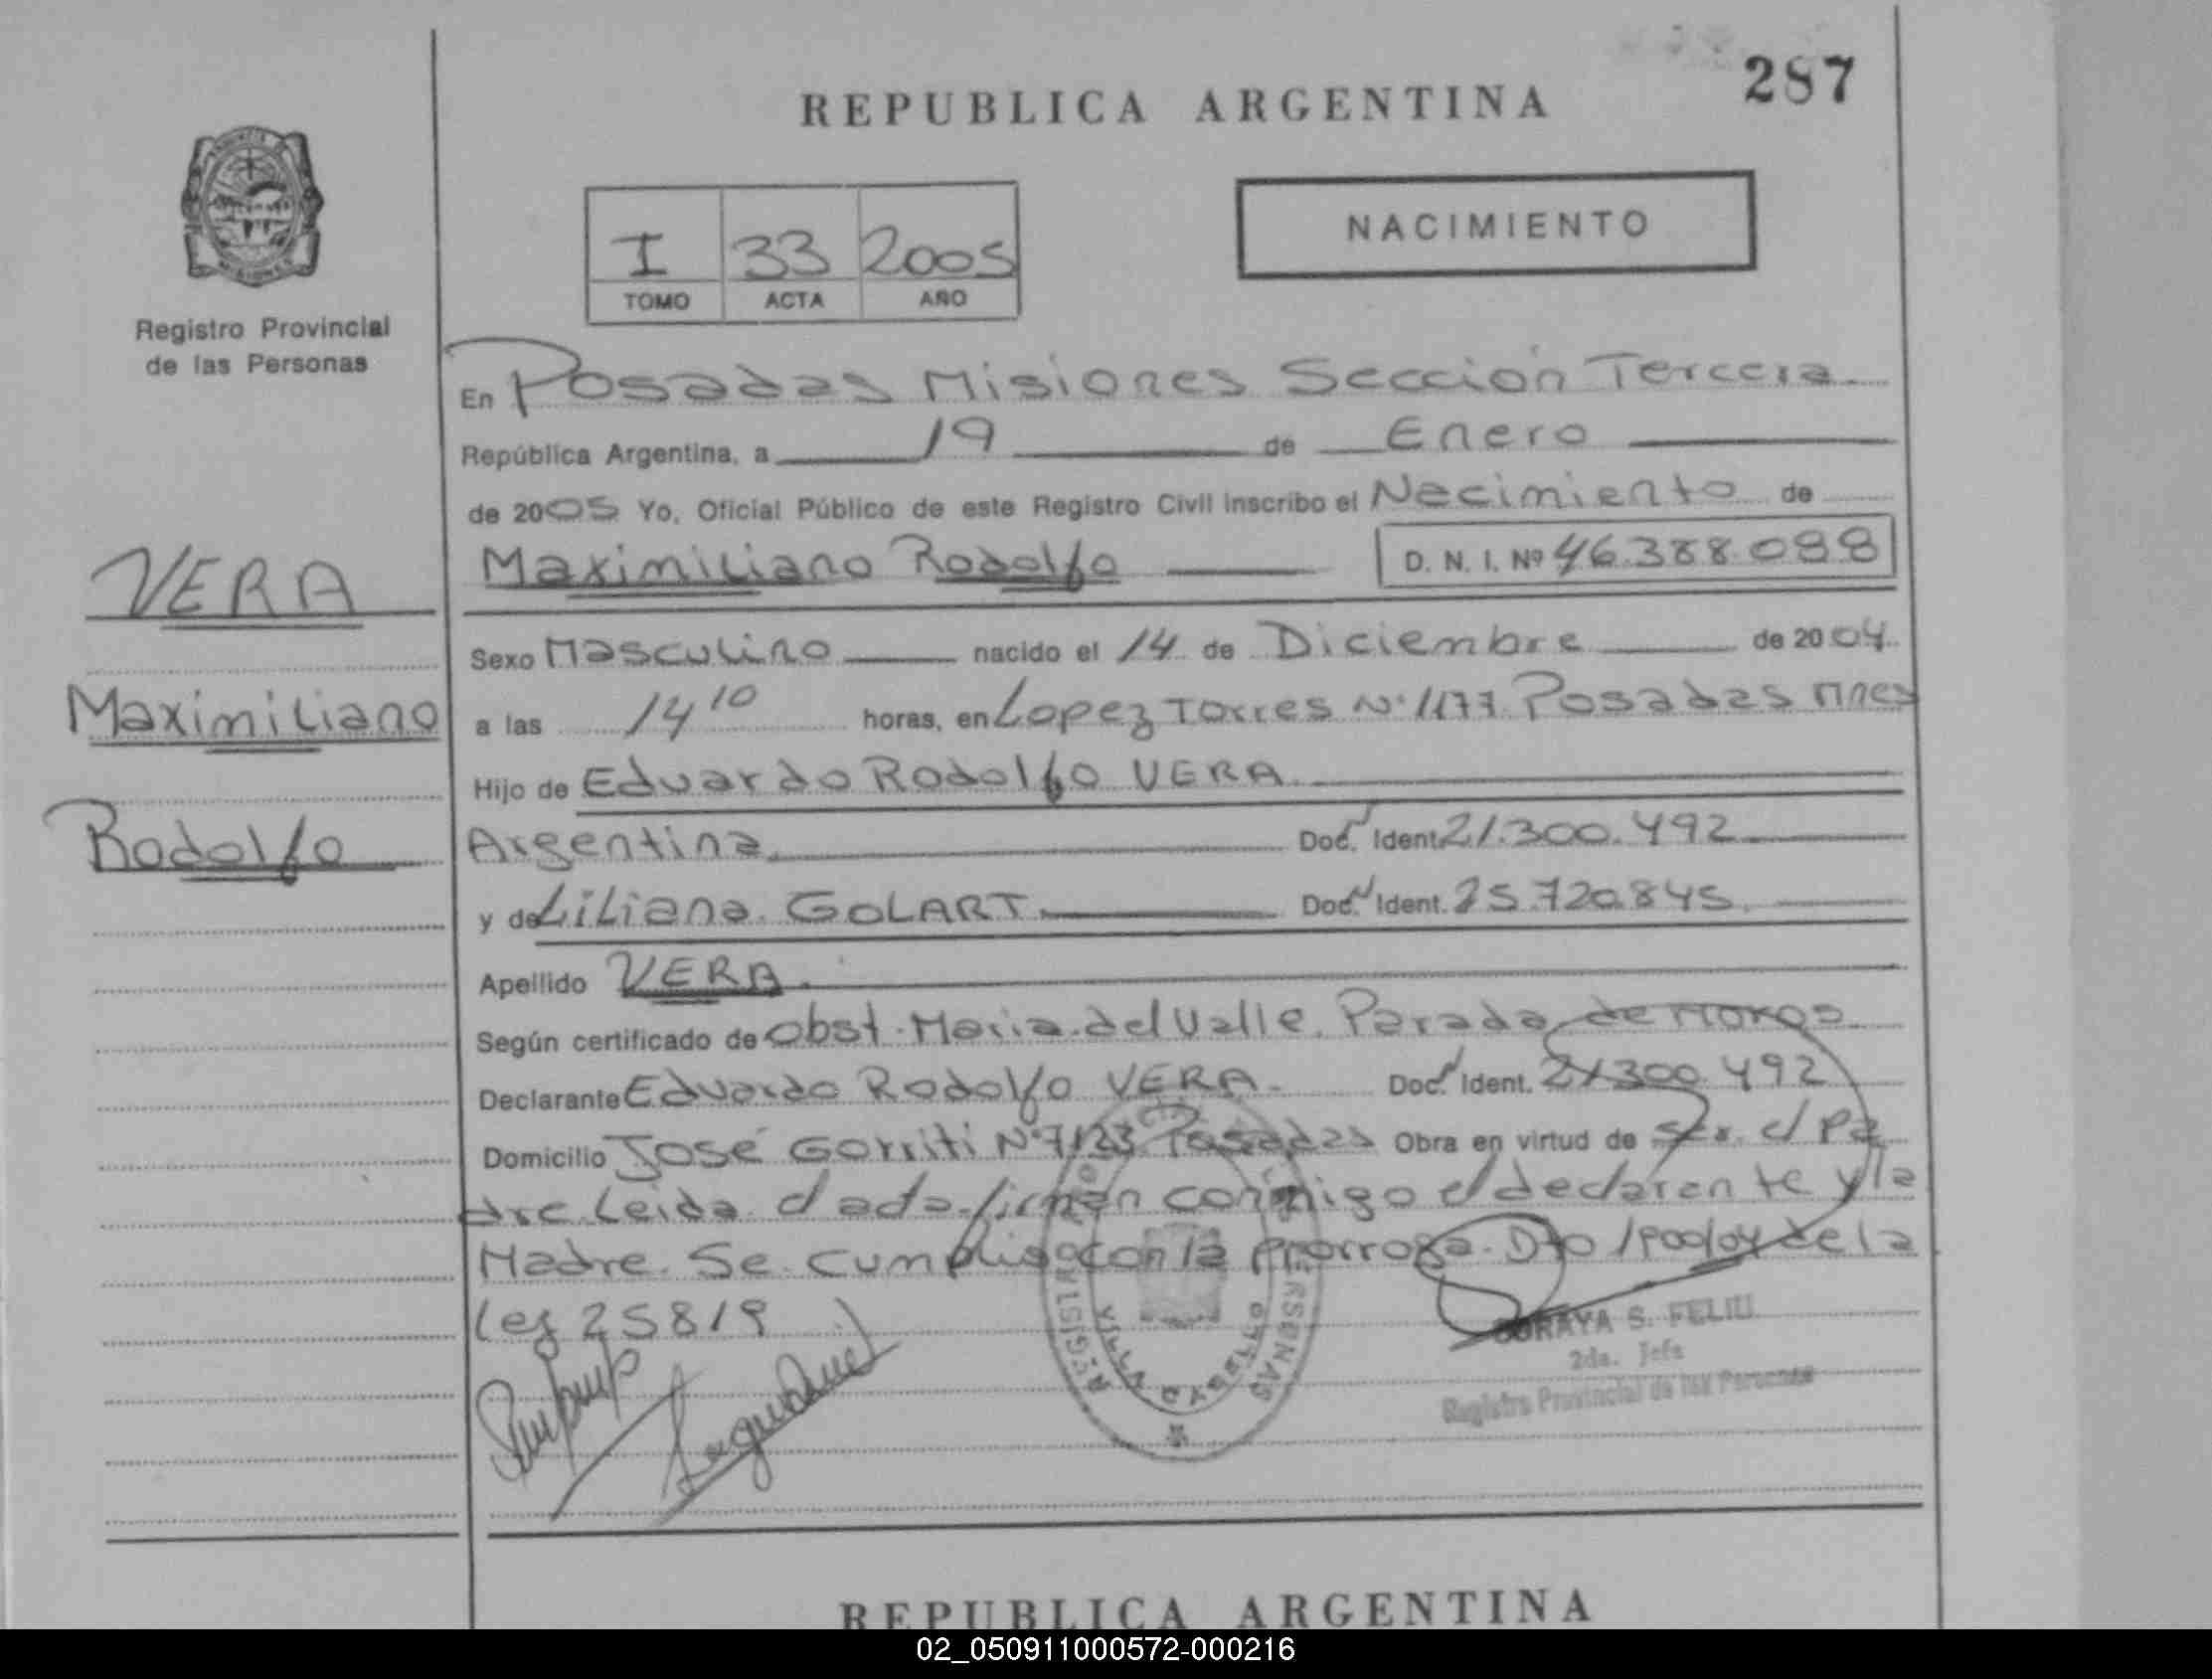 287
REPUBLICA ARGENTINA
NACIMIENTO
I 33 2005
TOMO ACTA AÑO
Registro Provincial
de las Personas
En Posadas Misiones Sección Tercera
República Argentina, a 19 de Enero
de 2005 Yo, Oficial Público de este Registro Civil inscribo el Nacimiento de
Maximiliano Rodolfo D. N. I. Nº 46.388.088
VERA
Maximiliano
Rodolfo
Sexo Masculino nacido el 14 de Diciembre de 2004
a las 14 10 horas, en Lopez Torres Nº 1177 Posadas Mnes
Hijo de Eduardo Rodolfo VERA
Argentina Doc. Ident. 21.300.492
y de Liliana GOLART Doc. Ident. 25.720.845
Apellido VERA
Según certificado de Obst. Maria del Valle Parada de
Declarante Eduardo Rodolfo VERA Doc. Ident. 21300.492
Domicilio José Gorriti Nº 7123 Posadas Obra en virtud de ser el Pa
dre Leida el acta firman conmigo el declarante y la
Madre. Se cumplio con la prorroga Dto 1900/04 de la
ley 25819
SORAYA S. FELIU
2da. Jefe
Registro Provincial de las Personas
REPUBLICA ARGENTINA
02_050911000572-000216